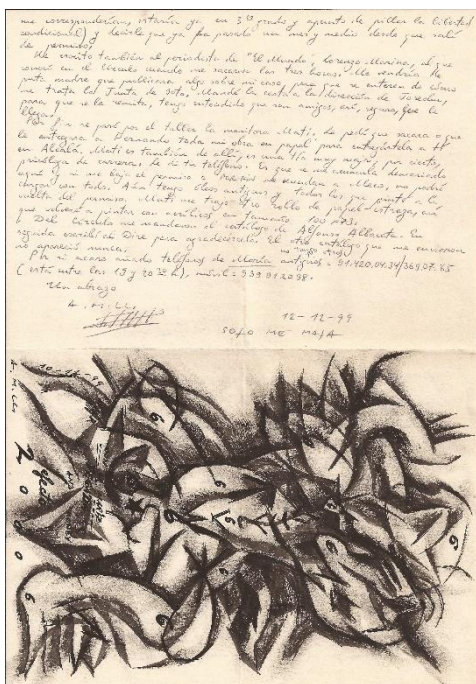 me corresponderían, estaría ya en 3er grado y a punto de pillar la libertad
condicional) y decirle que ya ha pasado un mes y medio desde que salí
de permiso.
He escrito también al periodista de "El Mundo", Lorenzo Marina, al que
conocí en el Círculo cuando me sacaron las tres horas. Me vendría de
puta madre que publicara algo sobre mi caso, para que se enteren de cómo
me trata la Junta de
para que se la remita, tengo entendido que son amigos, así, seguro que le
llega.
Por fin se pasó por el taller la monitora Mati, le pedí que sacara o que
le entregara a Hernando toda mi obra en papel, para entregártela a ti
en Alcalá. Mati es también de allí, es una tía muy maja, por cierto,
psicóloga de carrera, le di tu teléfono. Es que se me acumula demasiado
aquí y si me baja el permiso a Madrid y me mandan a Meco, no podré
cargar con todo. Aún tengo óleos antiguos y todos los que pinté a la
vuelta del permiso. Mati me trajo otro rollo de papel estraza, así
que volveré a pintar con acrílicos en tamaño 100 x 73.
Del Córdoba me mandaron el catálogo de Alfonso Albacete. En
seguida escribí a Dice para agradecérselo. El otro catálogo que me enviaron
no apareció nunca.
Por si acaso mando teléfonos de María
91.420.04.34/369.07.85
(está entre las 19 y 20 30 h), móvil = 939012098.
Un abrazo
A. M. LL.
12-12-99
SOLO ME MAJA
A. M. LL.
10-12-99
2000
6
6
6
6
6
6
6
6